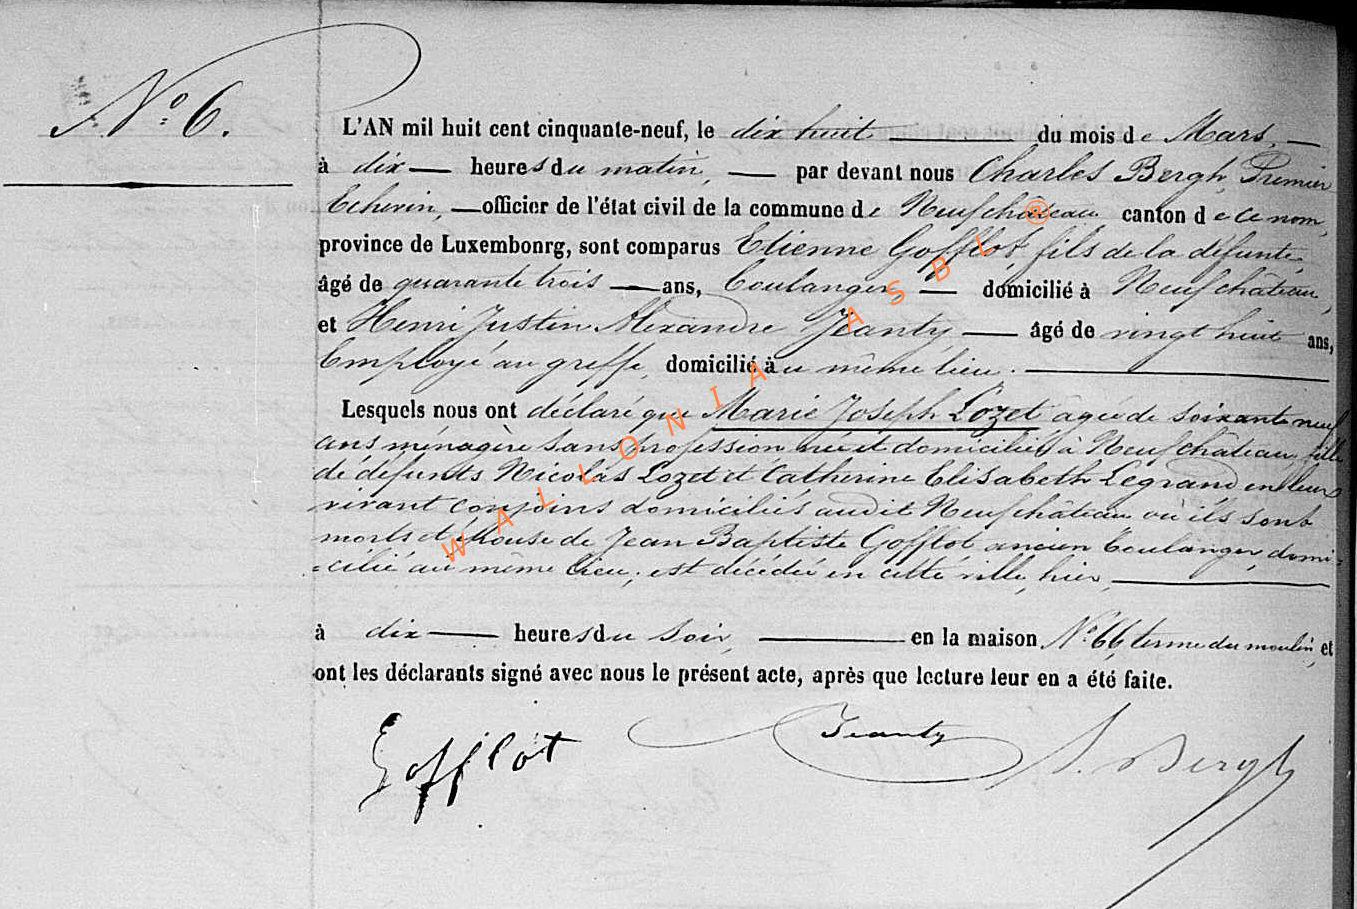 N° 6.
L'AN mil huit cent cinquante-neuf, le dix huit du mois de Mars,
à dix heures du matin, par devant nous Charles Bergh, Premier
Echevin, officier de l'état civil de la commune de Neufchateau canton de ce nom,
province de Luxembonrg, sont comparus Etienne Gofflot, fils de la défunte,
âgé de quarante trois ans, boulanger, domicilié à Neufchâteau,
et Henri Justin Alexandre Jeanty âgé de vingt huit ans,
Employé au greffe, domicilié au même lieu.
Lesquels nous ont déclaré que Marie Joseph Lozet âgée de soixante neuf
ans ménagère sans profession née et domiciliée à Neufchâteau, fille
de défunts Nicolas Lozet et Catherine Elisabeth Legrand en leur
vivant conjoins domiciliés audit Neufchâteau où ils sont
morts et épouse de Jean Baptiste Gofflot ancien boulanger, domi-
-cilié au même lieu, est décédée en cette ville, hier,
à dix heures du soir, en la maison N° 66, terme du moulin, et
ont les déclarants signé avec nous le présent acte, après que lecture leur en a été faite.
Gofflot Jeanty Bergh
WALLONIA ASBL ®